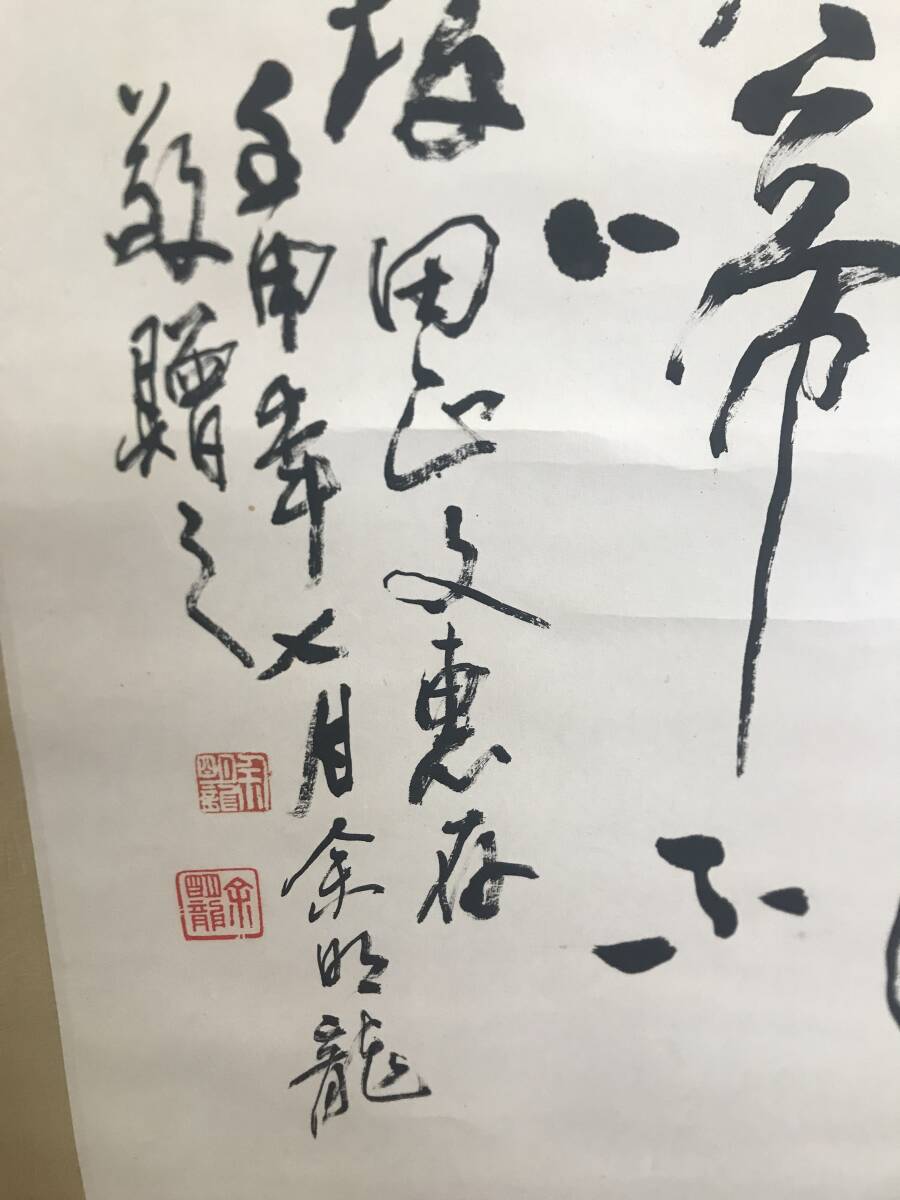 啼不
田正文惠存
壬申年七月余明龍
敬贈之
余明龍
余明龍